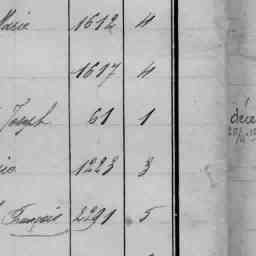 Marie 1612 4
1617 4
Joseph 61 1
1223 3
François 2291 5